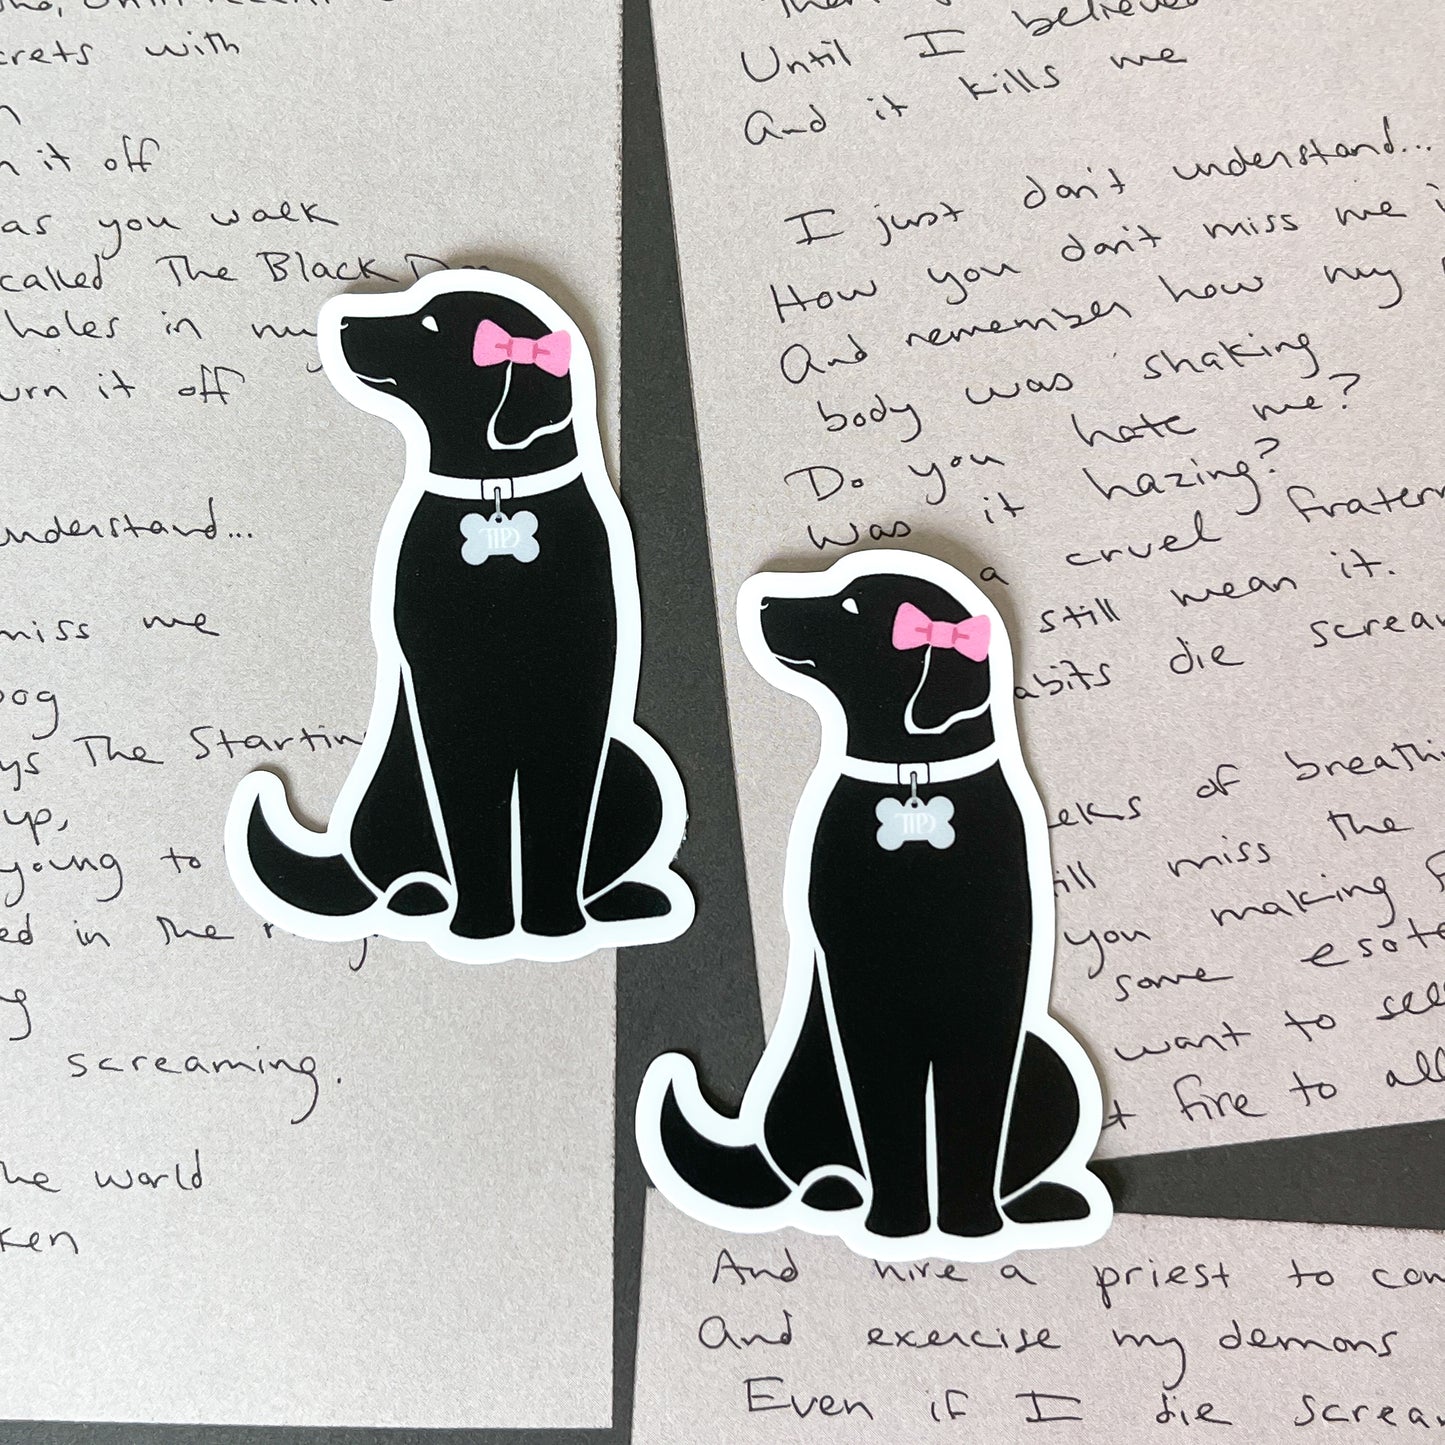 secrets with
it off
as you walk
called The Black
holes in my
turn it off
understand...
miss me
Dog
The Starting
up,
young to
in the
screaming.
the world
Until I believed
And it kills me
I just don't understand...
How you don't miss me
And remember how my
body was shaking
Do you hate me?
Was it hazing?
a cruel
still mean it.
die
of
miss the
you making
some
want to
fire to all
And hire a priest to
And exercise my demons
Even if I die
TTPD
TTPD